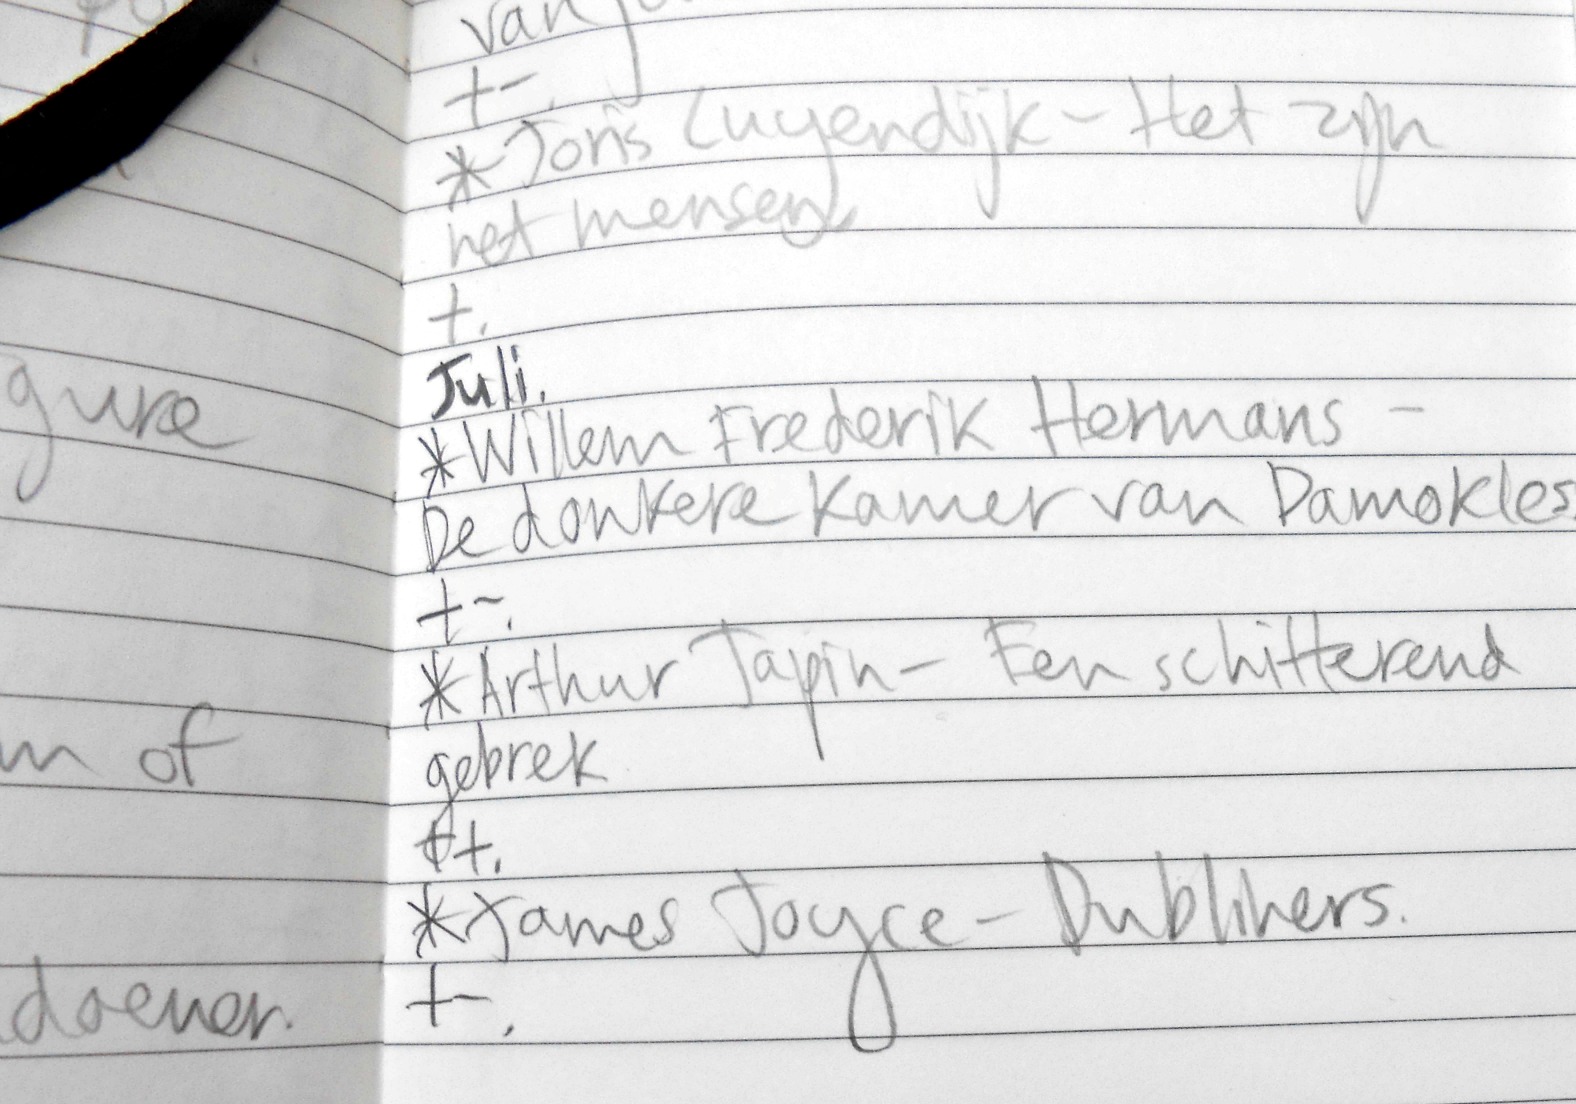 gure
m of
doener.
van
+-.
*Joris Luyendijk - Het zijn
net mensen.
+.
Juli.
*Willem Frederik Hermans -
De donkere kamer van Damokles.
+-.
*Arthur Japin - Een schitterend
gebrek
++.
*James Joyce - Dubliners.
+-.